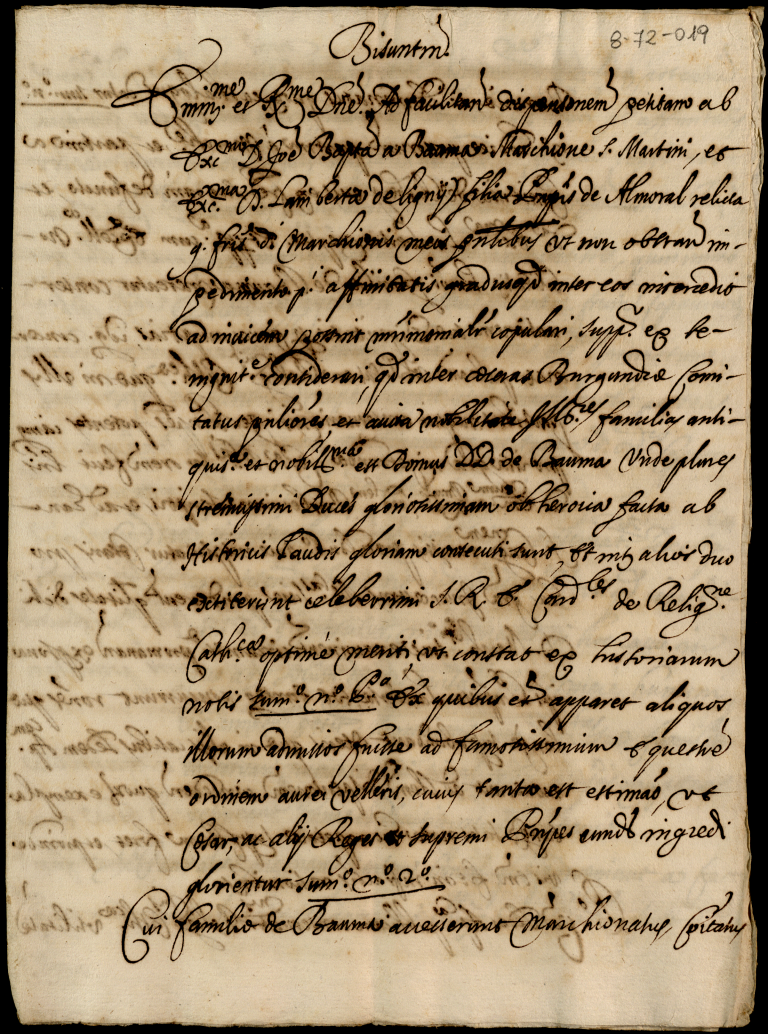 Bisuntin.
8-72-019
Emin.me et R.me Dne. Ad facilitand dispensionem petitam ab
Exc.mo D. Joe Bapta a Bauma Marchione S. Martini, et
Exc.ma D. Lamberta de ligny filia Prnpis de Almoral relicta
q. fris d. Marchionis meis pntibus vt non obstan im-
pedimento p.i affinitatis gradus qd inter eos intercedit
ad inuicem possint mrimonialr copulari, supp.r ex be-
nignit.e considerari, qd inter coeteras Burgundiæ Comi-
tatus pnliores, et auita nobilitate familias anti-
quis.a et nobiliss.ma est Domus DD. de Bauma vnde plures
strenuissimi Duces gloriosissimam ob heroica facta ab
Historicis laudis gloriam consecuti sunt, et int alios duo
extiterunt celeberrimi S. R. E. Card.les de Relig.ne
Cath.ca optimé meriti, vt constat ex historiarum
notis sum.o n.o P.o Ex quibus et apparet aliquos
illorum admissos fuisse ad famosissimum Equestré
ordinem aurei velleris, cuius tanta est estimao, vt
Cesar, ac alij Reges et supremi Prnpes eund ingredi
glorientur sum.o n.o 2.o
Cui familie de Bauma accesserunt Marchionatus, Comitatus